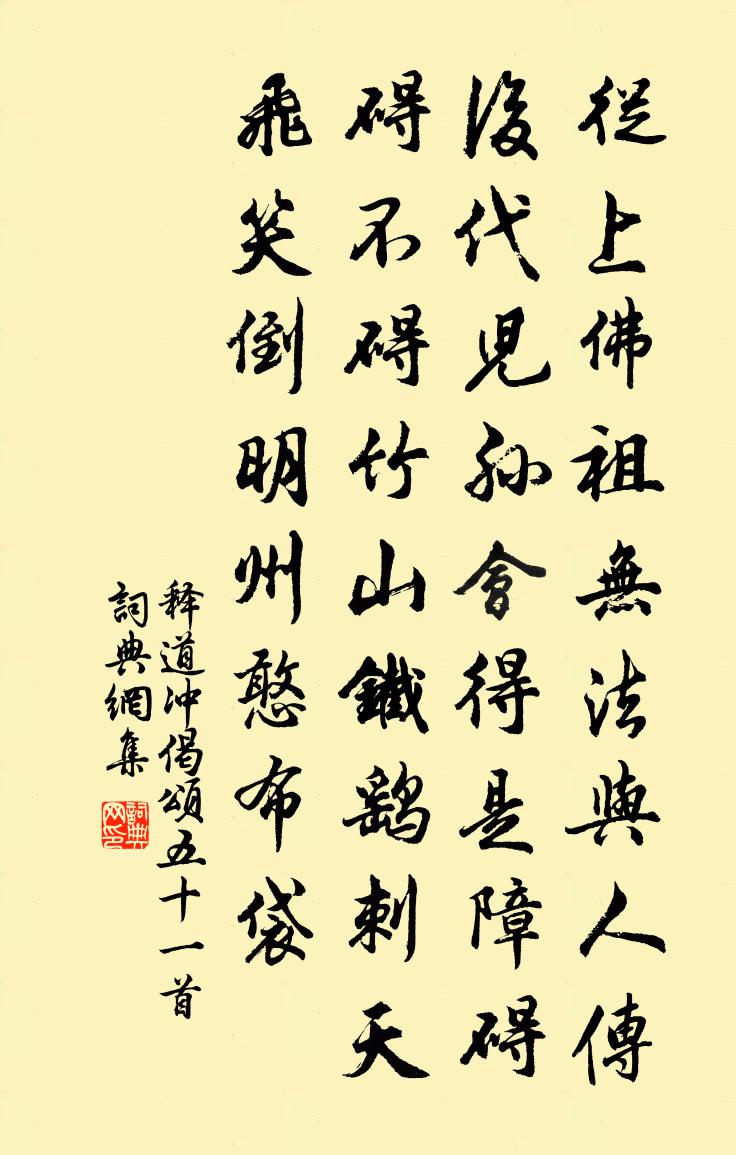 從上佛祖無法與人傳
後代兒孫會得是障碍
碍不碍竹山鐵鷂刺天
飛笑倒明州憨布袋
释道冲偈頌五十一首
詞典網集
詞典网印